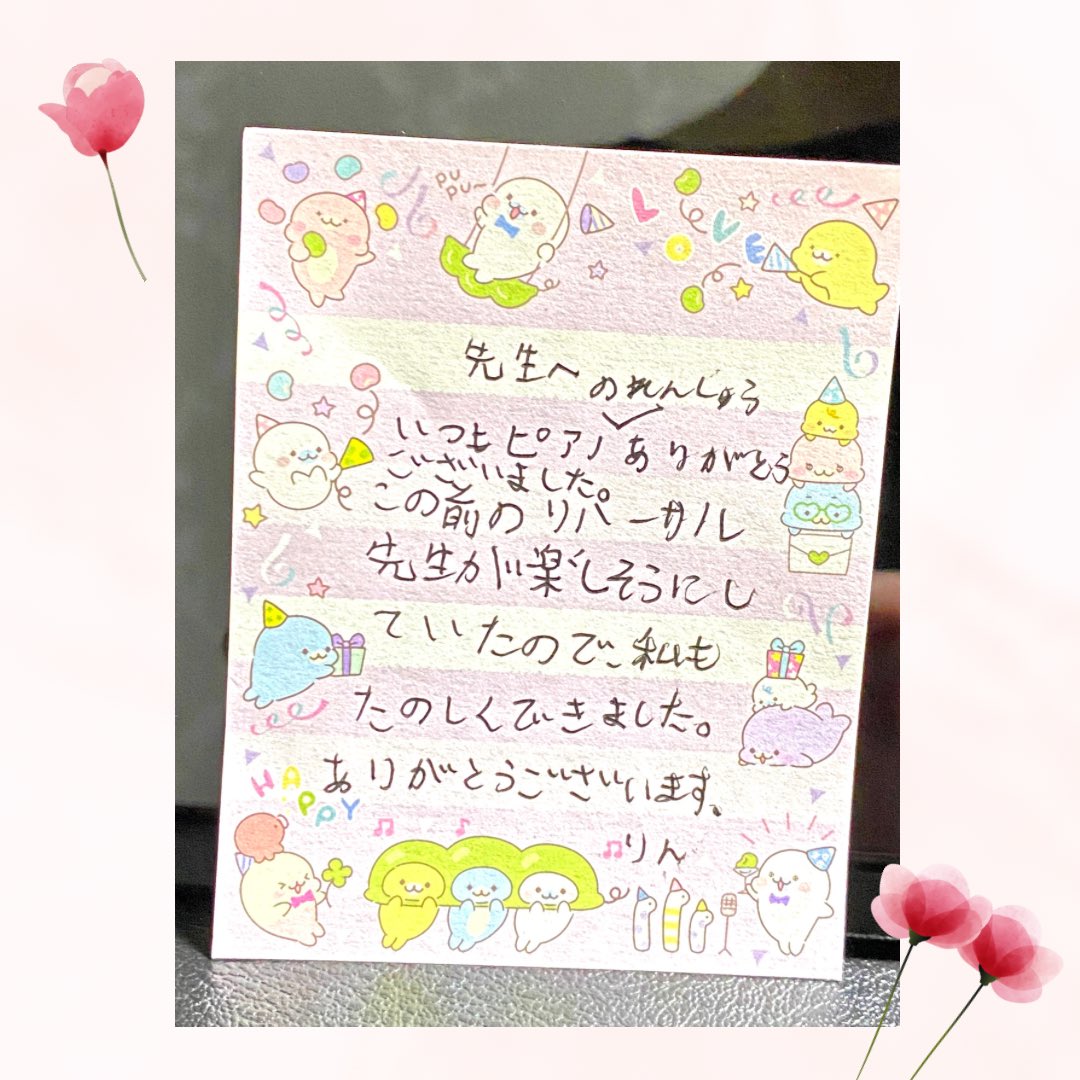 PU
PU~
LOVE
先生へ
のれんじゅう
いつもピアノありがとう
ございました。
この前のリハーサル
先生が楽しそうにし
ていたので私も
たのしくできました。
ありがとうございます。
HAPPY
りん